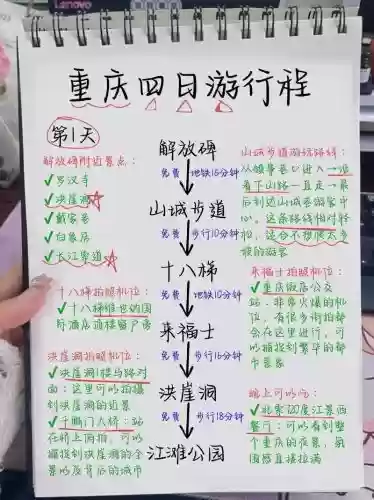 Lenovo
重庆四日游行程
第1天
解放碑附近景点:
✓罗汉寺
✓洪崖洞☆
✓戴家巷
✓白象居
✓长江索道☆
十八梯拍照机位:
✓十八梯维也纳国
际酒店酒楼窗户旁
洪崖洞拍照机位:
✓洪崖洞1楼马路对
面:这里可以拍摄
到洪崖洞的近景
✓千厮门大桥:站
在桥上俯拍,可以
捕捉到洪崖洞的全
景以及背后的城市
解放碑
免费 地铁15分钟
山城步道
免费 步行10分钟
十八梯
免费 地铁10分钟
来福士
免费 步行16分钟
洪崖洞
免费 步行18分钟
江滩公园
山城步道游玩路线:
从领事巷口进入→沿
着下山路一直走→最
后到达山城巷游客中
心。这条路线相对轻
松,适合不想爬太多
坡的游客
来福士拍照机位:
✓重庆饭店公交
站:非常火爆的机
位,有很多街拍都
会在这里进行,可
以捕捉到繁华的都
市景象
晚上可以吃:
✓北紫120度江景西
餐厅:可以看到整
个重庆的夜景,氛
围感直接拉满